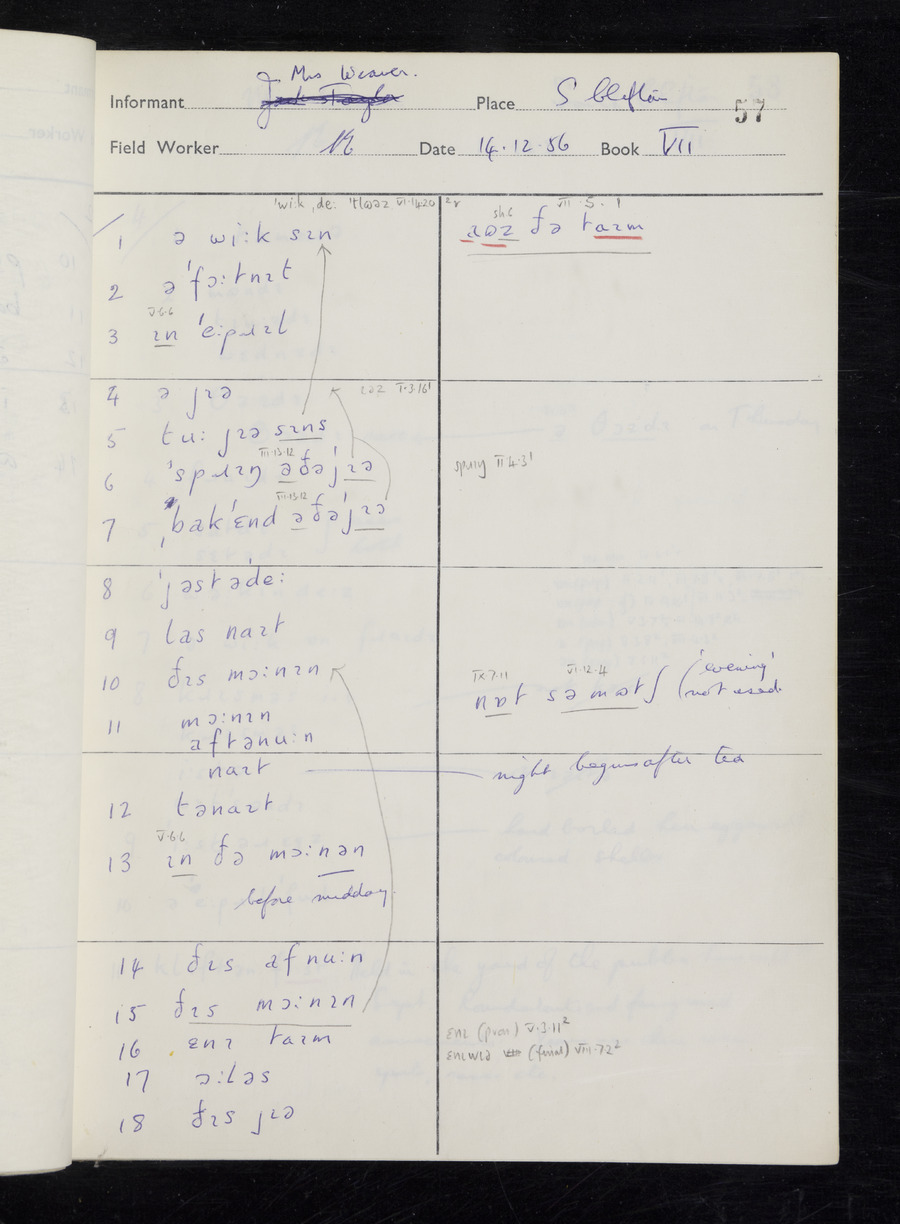 Mrs Weaver.
Informant
Place S Clifton
57
Field Worker
Date 14.12.56 Book VII
ˈwiːk ˌdeː
VI·14·20
VII·5·1
1 ə wiːk sɪn
aʊz ðə taɪm
2 əˈfɔːtnɪt
V·6·6
3 ɪn ˈeːpɹɪl
4 ə jɪə
ɪəz
5 tuː jɪə sɪns
III·13·12
6 ˈspɹɪŋ əðəˈjɪə
spɹɪŋ II 4·3¹
III·13·12
7 ˌbakˈɛnd əðəˈjɪə
8 ˈjəstədeː
9 las naɪt
10 ðɪs mɔːnɪn
IX·7·11 VI·12·4
nɒt səmətʃ ('evening'
not used
11 mɔːnɪn
aftənuːn
naɪt
night begins after tea
12 tənaɪt
V·6·6
13 ɪn ðə mɔːnən
before midday
14 ðɪs afnuːn
15 ðɪs mɔːnɪn
16 ɛnɪ taɪm
ɛnɪ (pron) V·3·11²
ɛnɪwɪə (final) VIII·7·2²
17 ɔːləs
18 ðɪs jɪə